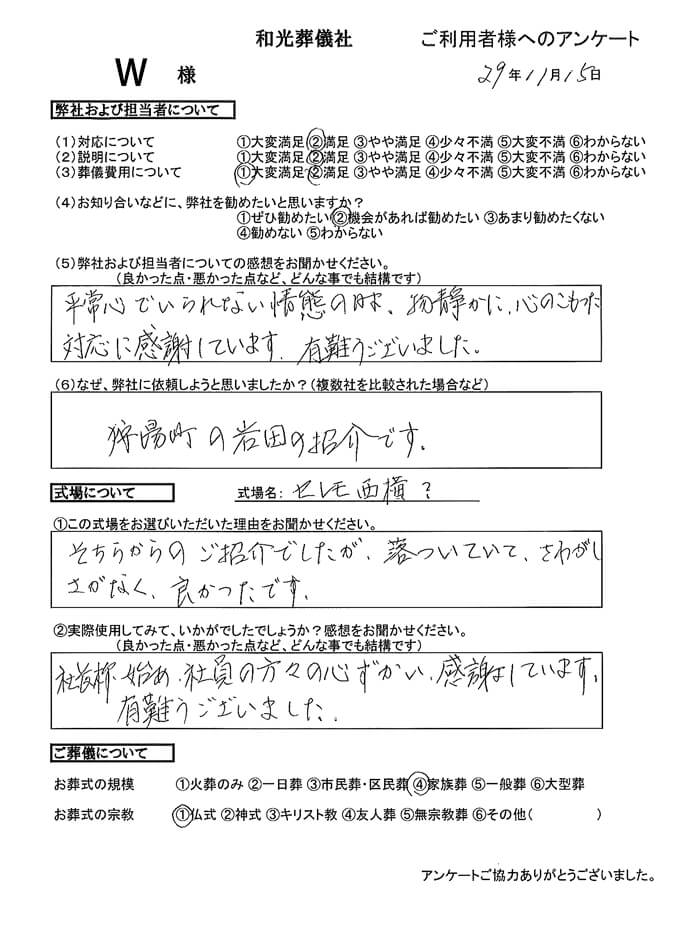 和光葬儀社 ご利用者様へのアンケート
W 様 29年11月15日
弊社および担当者について
(1)対応について ①大変満足 ②満足 ③やや満足 ④少々不満 ⑤大変不満 ⑥わからない
(2)説明について ①大変満足 ②満足 ③やや満足 ④少々不満 ⑤大変不満 ⑥わからない
(3)葬儀費用について ①大変満足 ②満足 ③やや満足 ④少々不満 ⑤大変不満 ⑥わからない
(4)お知り合いなどに、弊社を勧めたいと思いますか?
①ぜひ勧めたい ②機会があれば勧めたい ③あまり勧めたくない
④勧めない ⑤わからない
(5)弊社および担当者についての感想をお聞かせください。
(良かった点・悪かった点など、どんな事でも結構です)
平常心でいられない情態の時、物静かに、心のこもった
対応に感謝しています。有難うございました。
(6)なぜ、弊社に依頼しようと思いましたか?(複数社を比較された場合など)
町の岩田の紹介です。
式場について 式場名: セレモ西横?
①この式場をお選びいただいた理由をお聞かせください。
そちらからのご紹介でしたが、落ついていて、さわがし
さがなく、良かったです。
②実際使用してみて、いかがでしたでしょうか?感想をお聞かせください。
(良かった点・悪かった点など、どんな事でも結構です)
社長様始め、社員の方々の心ずかい、感謝しています。
有難うございました。
ご葬儀について
お葬式の規模 ①火葬のみ ②一日葬 ③市民葬・区民葬 ④家族葬 ⑤一般葬 ⑥大型葬
お葬式の宗教 ①仏式 ②神式 ③キリスト教 ④友人葬 ⑤無宗教葬 ⑥その他( )
アンケートご協力ありがとうございました。